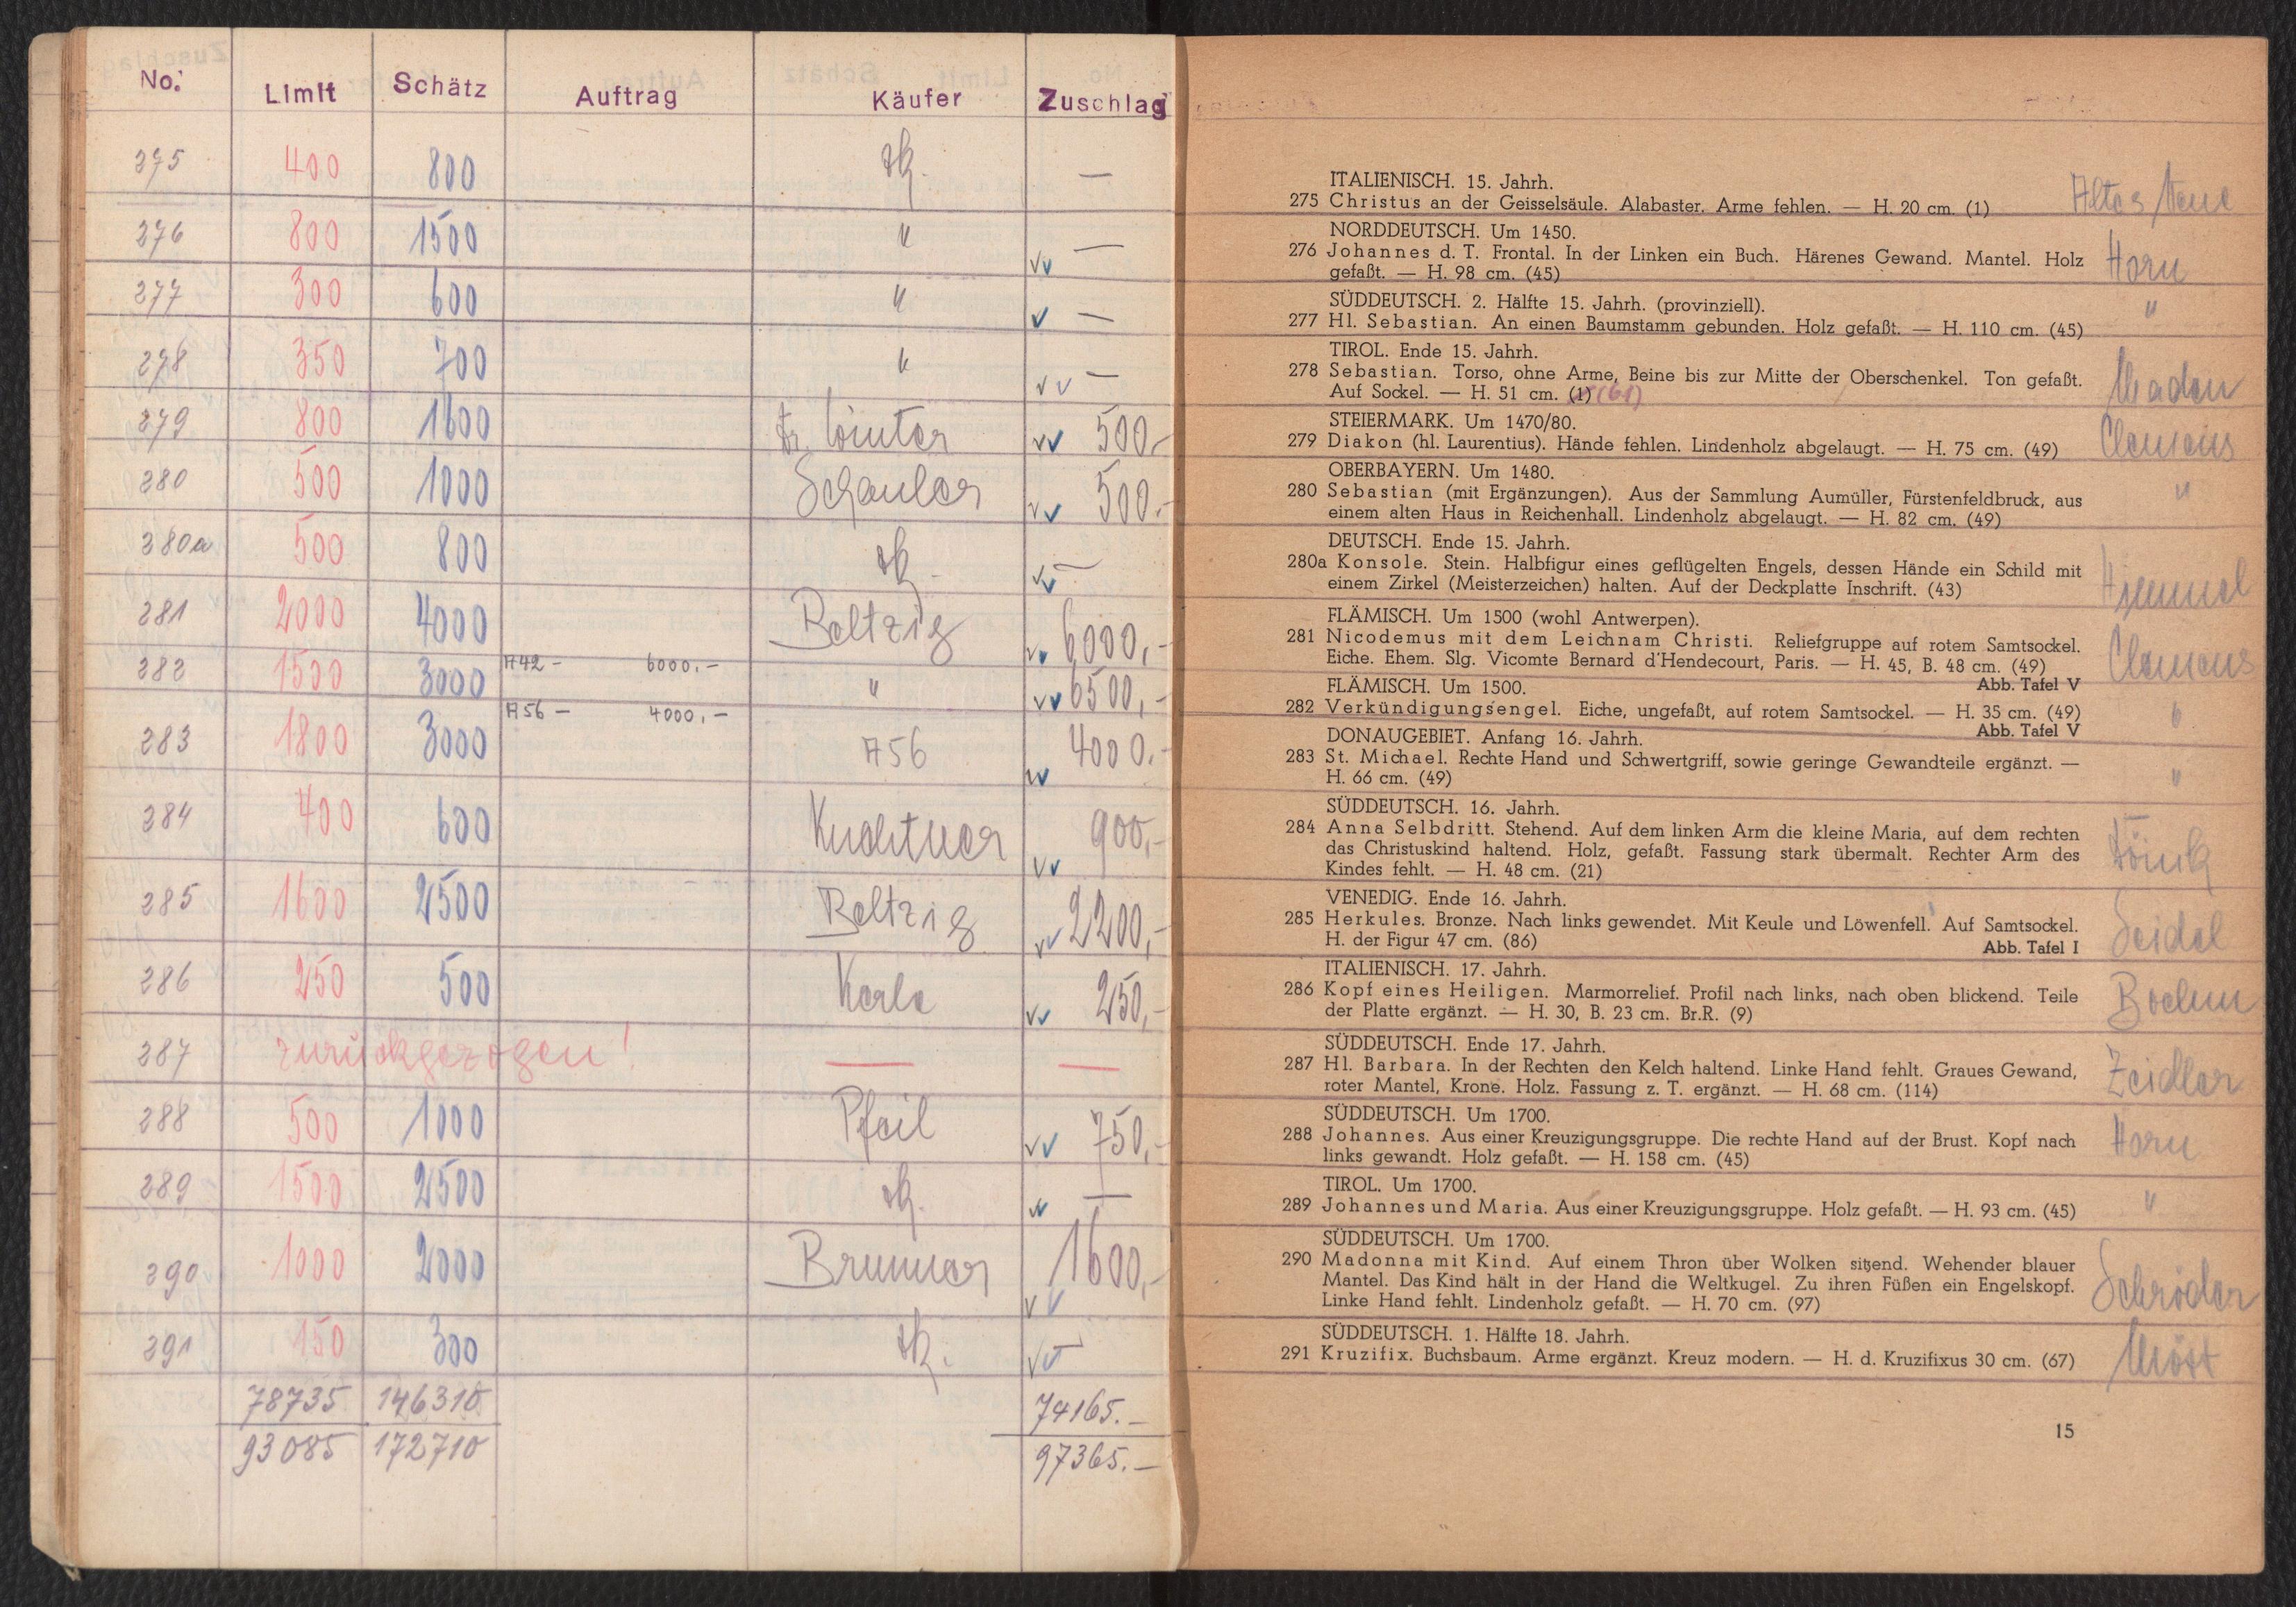 No. Limit Schätz Auftrag Käufer Zuschlag
275 400 800 zk. —
276 800 1500 " —
277 300 600 " —
278 350 700 " —
279 800 1600 Dr. Winter 500,-
280 500 1000 500.-
280a 500 800 zk. —
281 2000 4000 Beltzig 6000,-
282 1500 3000 A42 - 6000,- " 6500,-
283 1800 3000 A56 - 4000,- A56 4000,-
284 400 600 900,-
285 1600 2500 Beltzig 2200,-
286 250 500 Kerle 250,-
287 zurückgezogen! — —
288 500 1000 Pfeil 750,-
289 1500 2500 zk. —
290 1000 2000 Brunner 1600,-
291 150 300 zk. —
78735 146310 74165.—
93085 172710 97365.—
ITALIENISCH. 15. Jahrh.
275 Christus an der Geisselsäule. Alabaster. Arme fehlen. — H. 20 cm. (1) Altes/Neue
NORDDEUTSCH. Um 1450.
276 Johannes d. T. Frontal. In der Linken ein Buch. Härenes Gewand. Mantel. Holz Horn
gefaßt. — H. 98 cm. (45)
SÜDDEUTSCH. 2. Hälfte 15. Jahrh. (provinziell). "
277 Hl. Sebastian. An einen Baumstamm gebunden. Holz gefaßt. — H. 110 cm. (45)
TIROL. Ende 15. Jahrh.
278 Sebastian. Torso, ohne Arme, Beine bis zur Mitte der Oberschenkel. Ton gefaßt.
Auf Sockel. — H. 51 cm. (1) (61)
STEIERMARK. Um 1470/80.
279 Diakon (hl. Laurentius). Hände fehlen. Lindenholz abgelaugt. — H. 75 cm. (49) Clemens
OBERBAYERN. Um 1480.
280 Sebastian (mit Ergänzungen). Aus der Sammlung Aumüller, Fürstenfeldbruck, aus "
einem alten Haus in Reichenhall. Lindenholz abgelaugt. — H. 82 cm. (49)
DEUTSCH. Ende 15. Jahrh.
280a Konsole. Stein. Halbfigur eines geflügelten Engels, dessen Hände ein Schild mit
einem Zirkel (Meisterzeichen) halten. Auf der Deckplatte Inschrift. (43)
FLÄMISCH. Um 1500 (wohl Antwerpen).
281 Nicodemus mit dem Leichnam Christi. Reliefgruppe auf rotem Samtsockel.
Eiche. Ehem. Slg. Vicomte Bernard d'Hendecourt, Paris. — H. 45, B. 48 cm. (49) Clemens
Abb. Tafel V
FLÄMISCH. Um 1500.
282 Verkündigungsengel. Eiche, ungefaßt, auf rotem Samtsockel. — H. 35 cm. (49) "
Abb. Tafel V
DONAUGEBIET. Anfang 16. Jahrh.
283 St. Michael. Rechte Hand und Schwertgriff, sowie geringe Gewandteile ergänzt. —
H. 66 cm. (49) "
SÜDDEUTSCH. 16. Jahrh.
284 Anna Selbdritt. Stehend. Auf dem linken Arm die kleine Maria, auf dem rechten
das Christuskind haltend. Holz, gefaßt. Fassung stark übermalt. Rechter Arm des
Kindes fehlt. — H. 48 cm. (21)
VENEDIG. Ende 16. Jahrh.
285 Herkules. Bronze. Nach links gewendet. Mit Keule und Löwenfell. Auf Samtsockel. Seidel
H. der Figur 47 cm. (86) Abb. Tafel I
ITALIENISCH. 17. Jahrh.
286 Kopf eines Heiligen. Marmorrelief. Profil nach links, nach oben blickend. Teile Boehm
der Platte ergänzt. — H. 30, B. 23 cm. Br.R. (9)
SÜDDEUTSCH. Ende 17. Jahrh.
287 Hl. Barbara. In der Rechten den Kelch haltend. Linke Hand fehlt. Graues Gewand, Zeidler
roter Mantel, Krone. Holz. Fassung z. T. ergänzt. — H. 68 cm. (114)
SÜDDEUTSCH. Um 1700.
288 Johannes. Aus einer Kreuzigungsgruppe. Die rechte Hand auf der Brust. Kopf nach Horn
links gewandt. Holz gefaßt. — H. 158 cm. (45)
TIROL. Um 1700.
289 Johannes und Maria. Aus einer Kreuzigungsgruppe. Holz gefaßt. — H. 93 cm. (45) "
SÜDDEUTSCH. Um 1700.
290 Madonna mit Kind. Auf einem Thron über Wolken sitzend. Wehender blauer
Mantel. Das Kind hält in der Hand die Weltkugel. Zu ihren Füßen ein Engelskopf. Schröder
Linke Hand fehlt. Lindenholz gefaßt. — H. 70 cm. (97)
SÜDDEUTSCH. 1. Hälfte 18. Jahrh.
291 Kruzifix. Buchsbaum. Arme ergänzt. Kreuz modern. — H. d. Kruzifixus 30 cm. (67) Möst
15